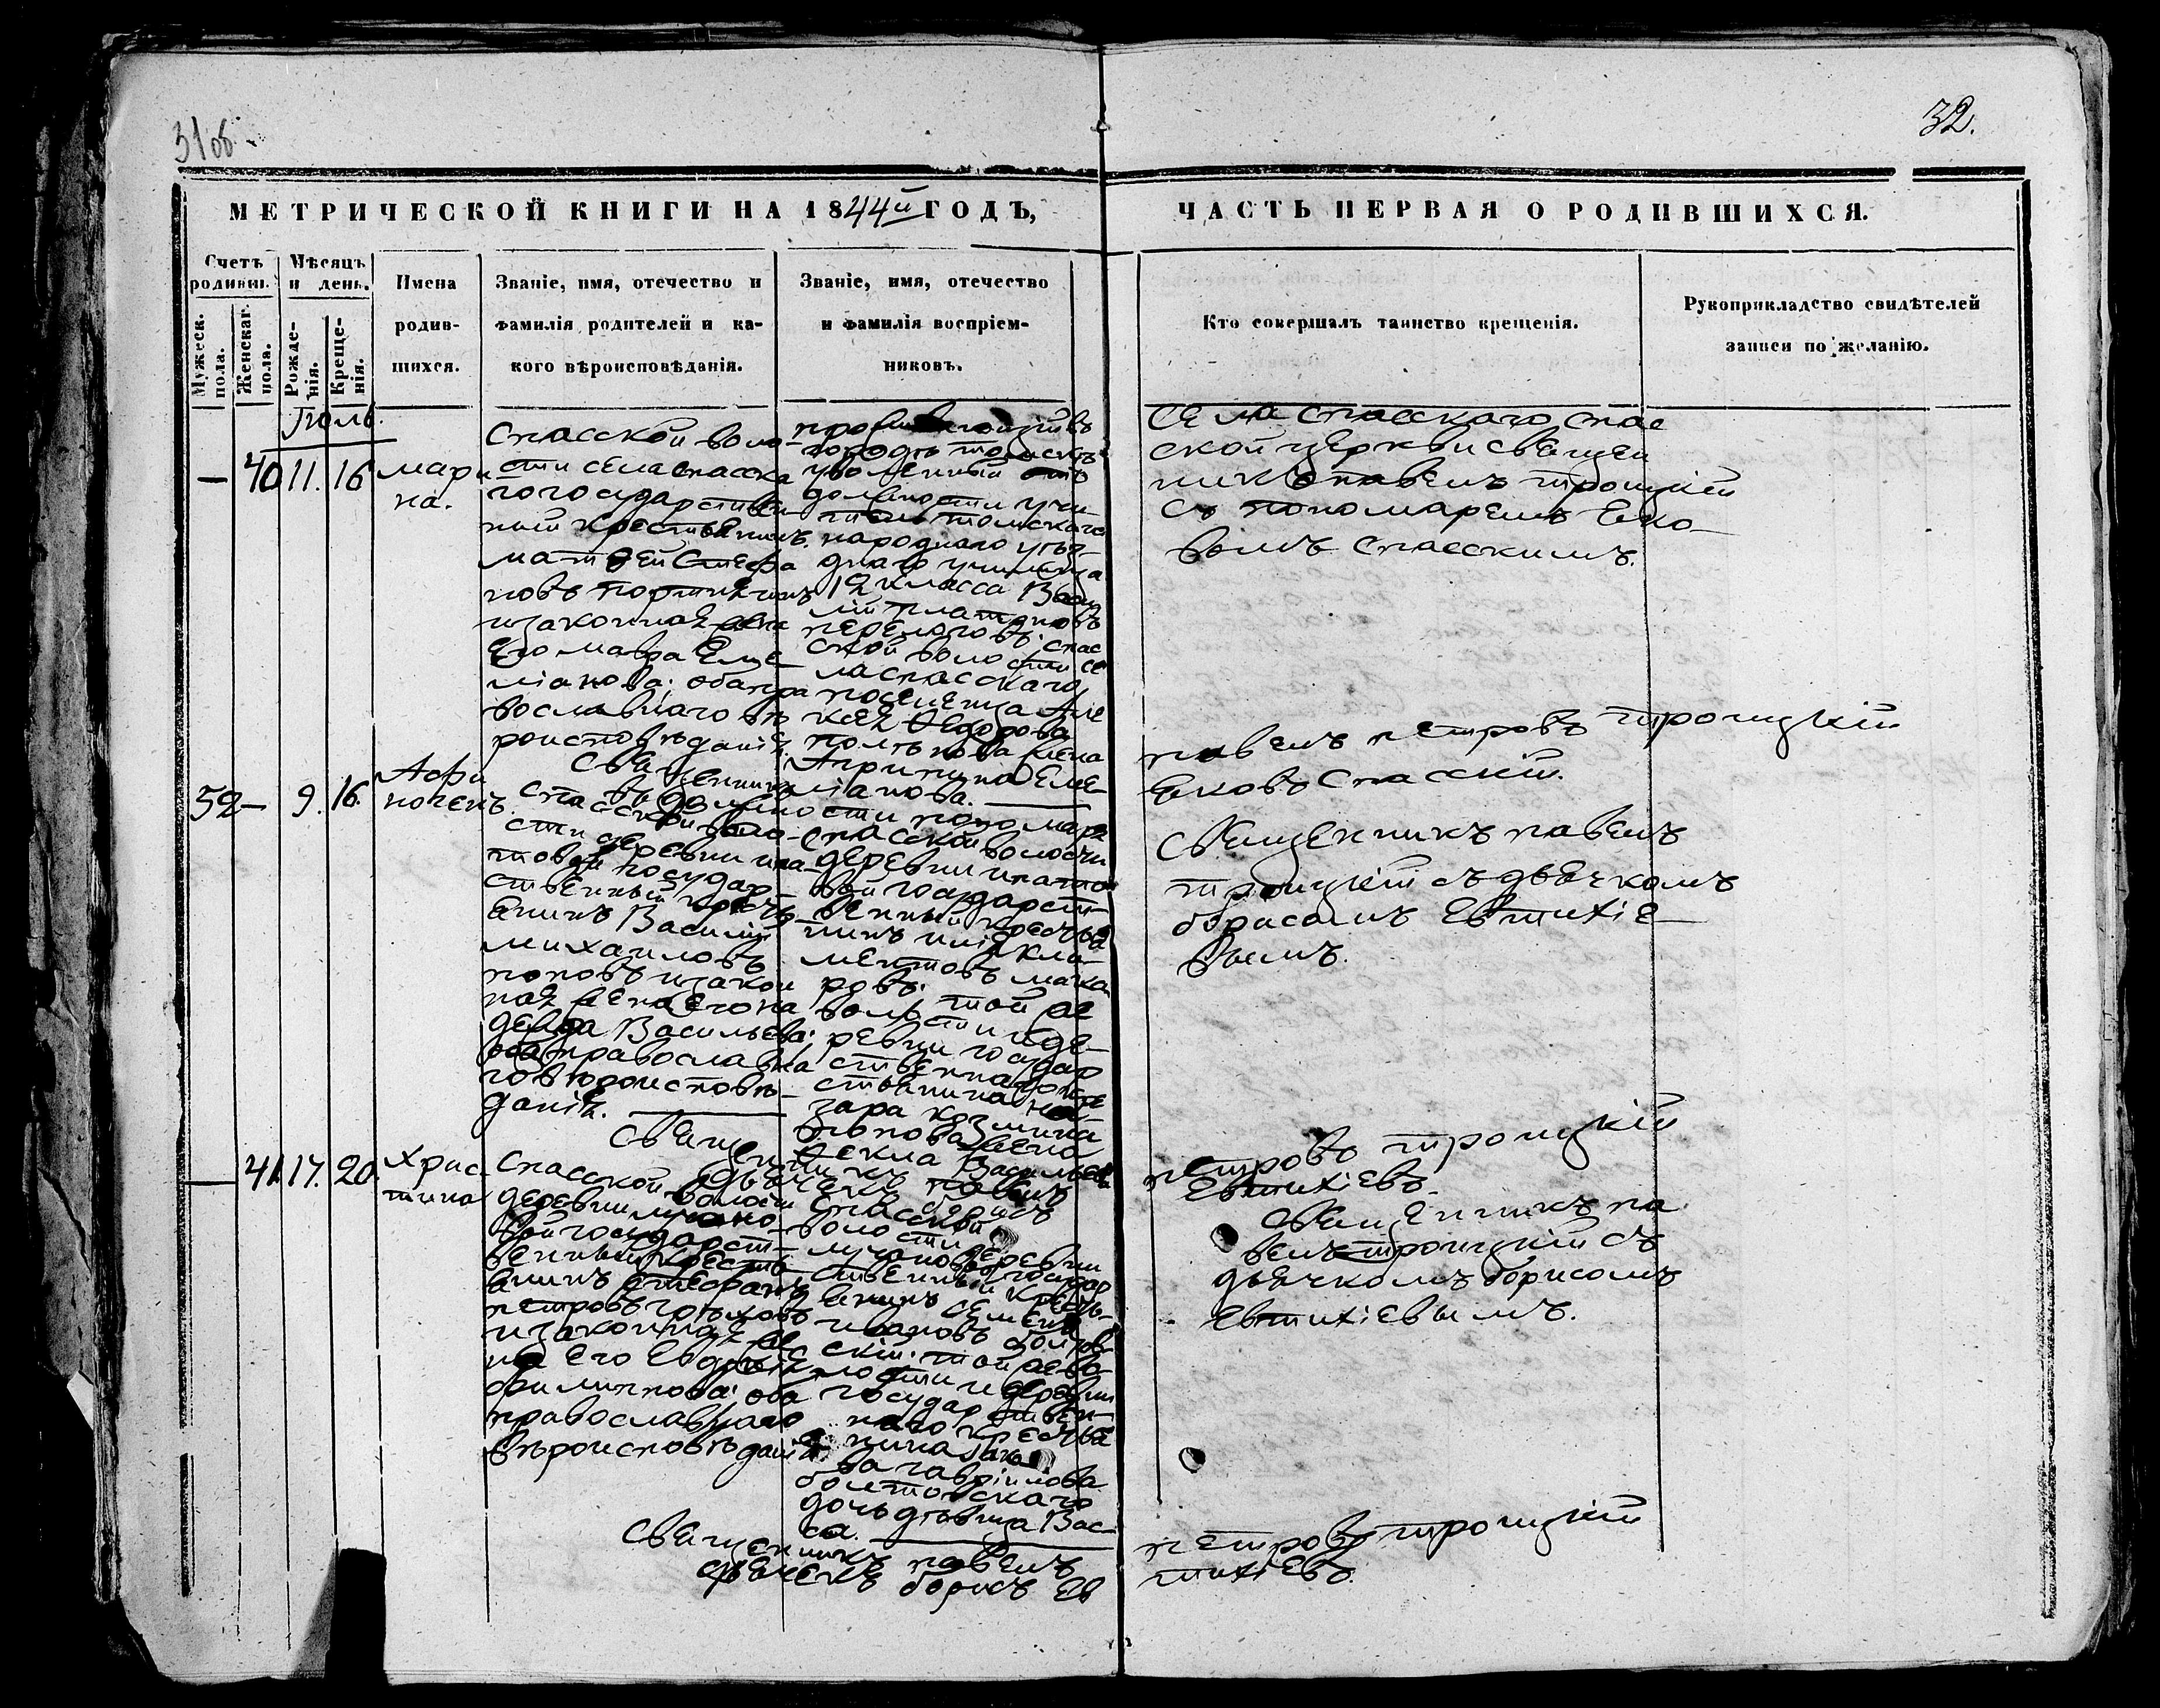 31об.
32.
МЕТРИЧЕСКОЙ КНИГИ НА 1844й ГОДЪ,
ЧАСТЬ ПЕРВАЯ О РОДИВШИХСЯ.
Счетъ родивш.
Мѣсяцъ и день.
Мужеск. пола.
Женскаг. пола.
Рожде-нія.
Креще-нія.
Имена
родив-
шихся.
Званіе, имя, отечество и
фамилія родителей и ка-
кого вѣроисповѣданія.
Званіе, имя, отечество
и фамилія воспріем-
никовъ.
Кто совершалъ таинство крещенія.
Рукоприкладство свидѣтелей
записи по желанію.
Іюль.
— 40 11. 16
Мари
на.
Спасской воло-
сти села Спасска
го государствен
ный крестьянинъ
Матвей Стефа
новъ Портнягинъ
и законная жена
его Мавра Еме
ліанова; оба пра
вославнаго вѣ
роисповѣданія
городѣ Томскѣ
уволенный отъ
должности учи-
теля Томскаго
народнаго уѣз-
днаго училища
12 класса Васи
лій Платоновъ
Спас
ской волости се
ла Спасскаго
поселенца Але
ксея Федорова
жена
Агрипина Еме-
ліанова.
Села Спасскаго Спас
ской церкви священ
никъ Павелъ Троицкій
съ пономаремъ Яко-
вомъ Спасскимъ.
Священникъ
Павелъ Петровъ Троицкій
въ должности пономаря
Яковъ Спасскій.
52 — 9. 16.
Афи
ногенъ
Спасской воло-
сти деревни Ипа-
товой государ-
ственный кресть-
янинъ Василій
Михаиловъ
Поповъ и закон
ная жена его На
дежда Васильева;
оба православна
го вѣроисповѣ-
данія.
Спасской волости
деревни Ипато
вой государст-
венный крестья
нинъ Илія Кли-
ментовъ
той же
волости и де-
ревни государ
ственнаго кре
стьянина На
зара Козмина
Попова жена
Фекла Васильева
Священникъ Павелъ
Троицкій съ дьячкомъ
Борисомъ Евтихіе-
вымъ.
Священникъ Павелъ
Петровъ Троицкій
Дьячекъ Борисъ
Евтихіевъ.
— 41. 17. 20.
Хрис-
тина
Спасской волости
деревни Лучано-
вой государст-
венный кресть
янинъ Стефанъ
Петровъ Голиковъ
и законная же
на его Евдокія
Филиппова; оба
православнаго
вѣроисповѣданія.
Спасской
волости
деревни
Лучановой государ
ственный кресть-
янинъ Семенъ
Ивановъ
той же во-
лости и деревни
государствен-
наго крестья
нина Яко
ва Гавріилова
Болтовскаго
дочь дѣвица Вас-
са.
Священникъ Па
велъ Троицкій съ
дьячкомъ Борисомъ
Евтихіевымъ.
Священникъ Павелъ
Петровъ Троицкій
Дьячекъ Борисъ Ев
тихіевъ.